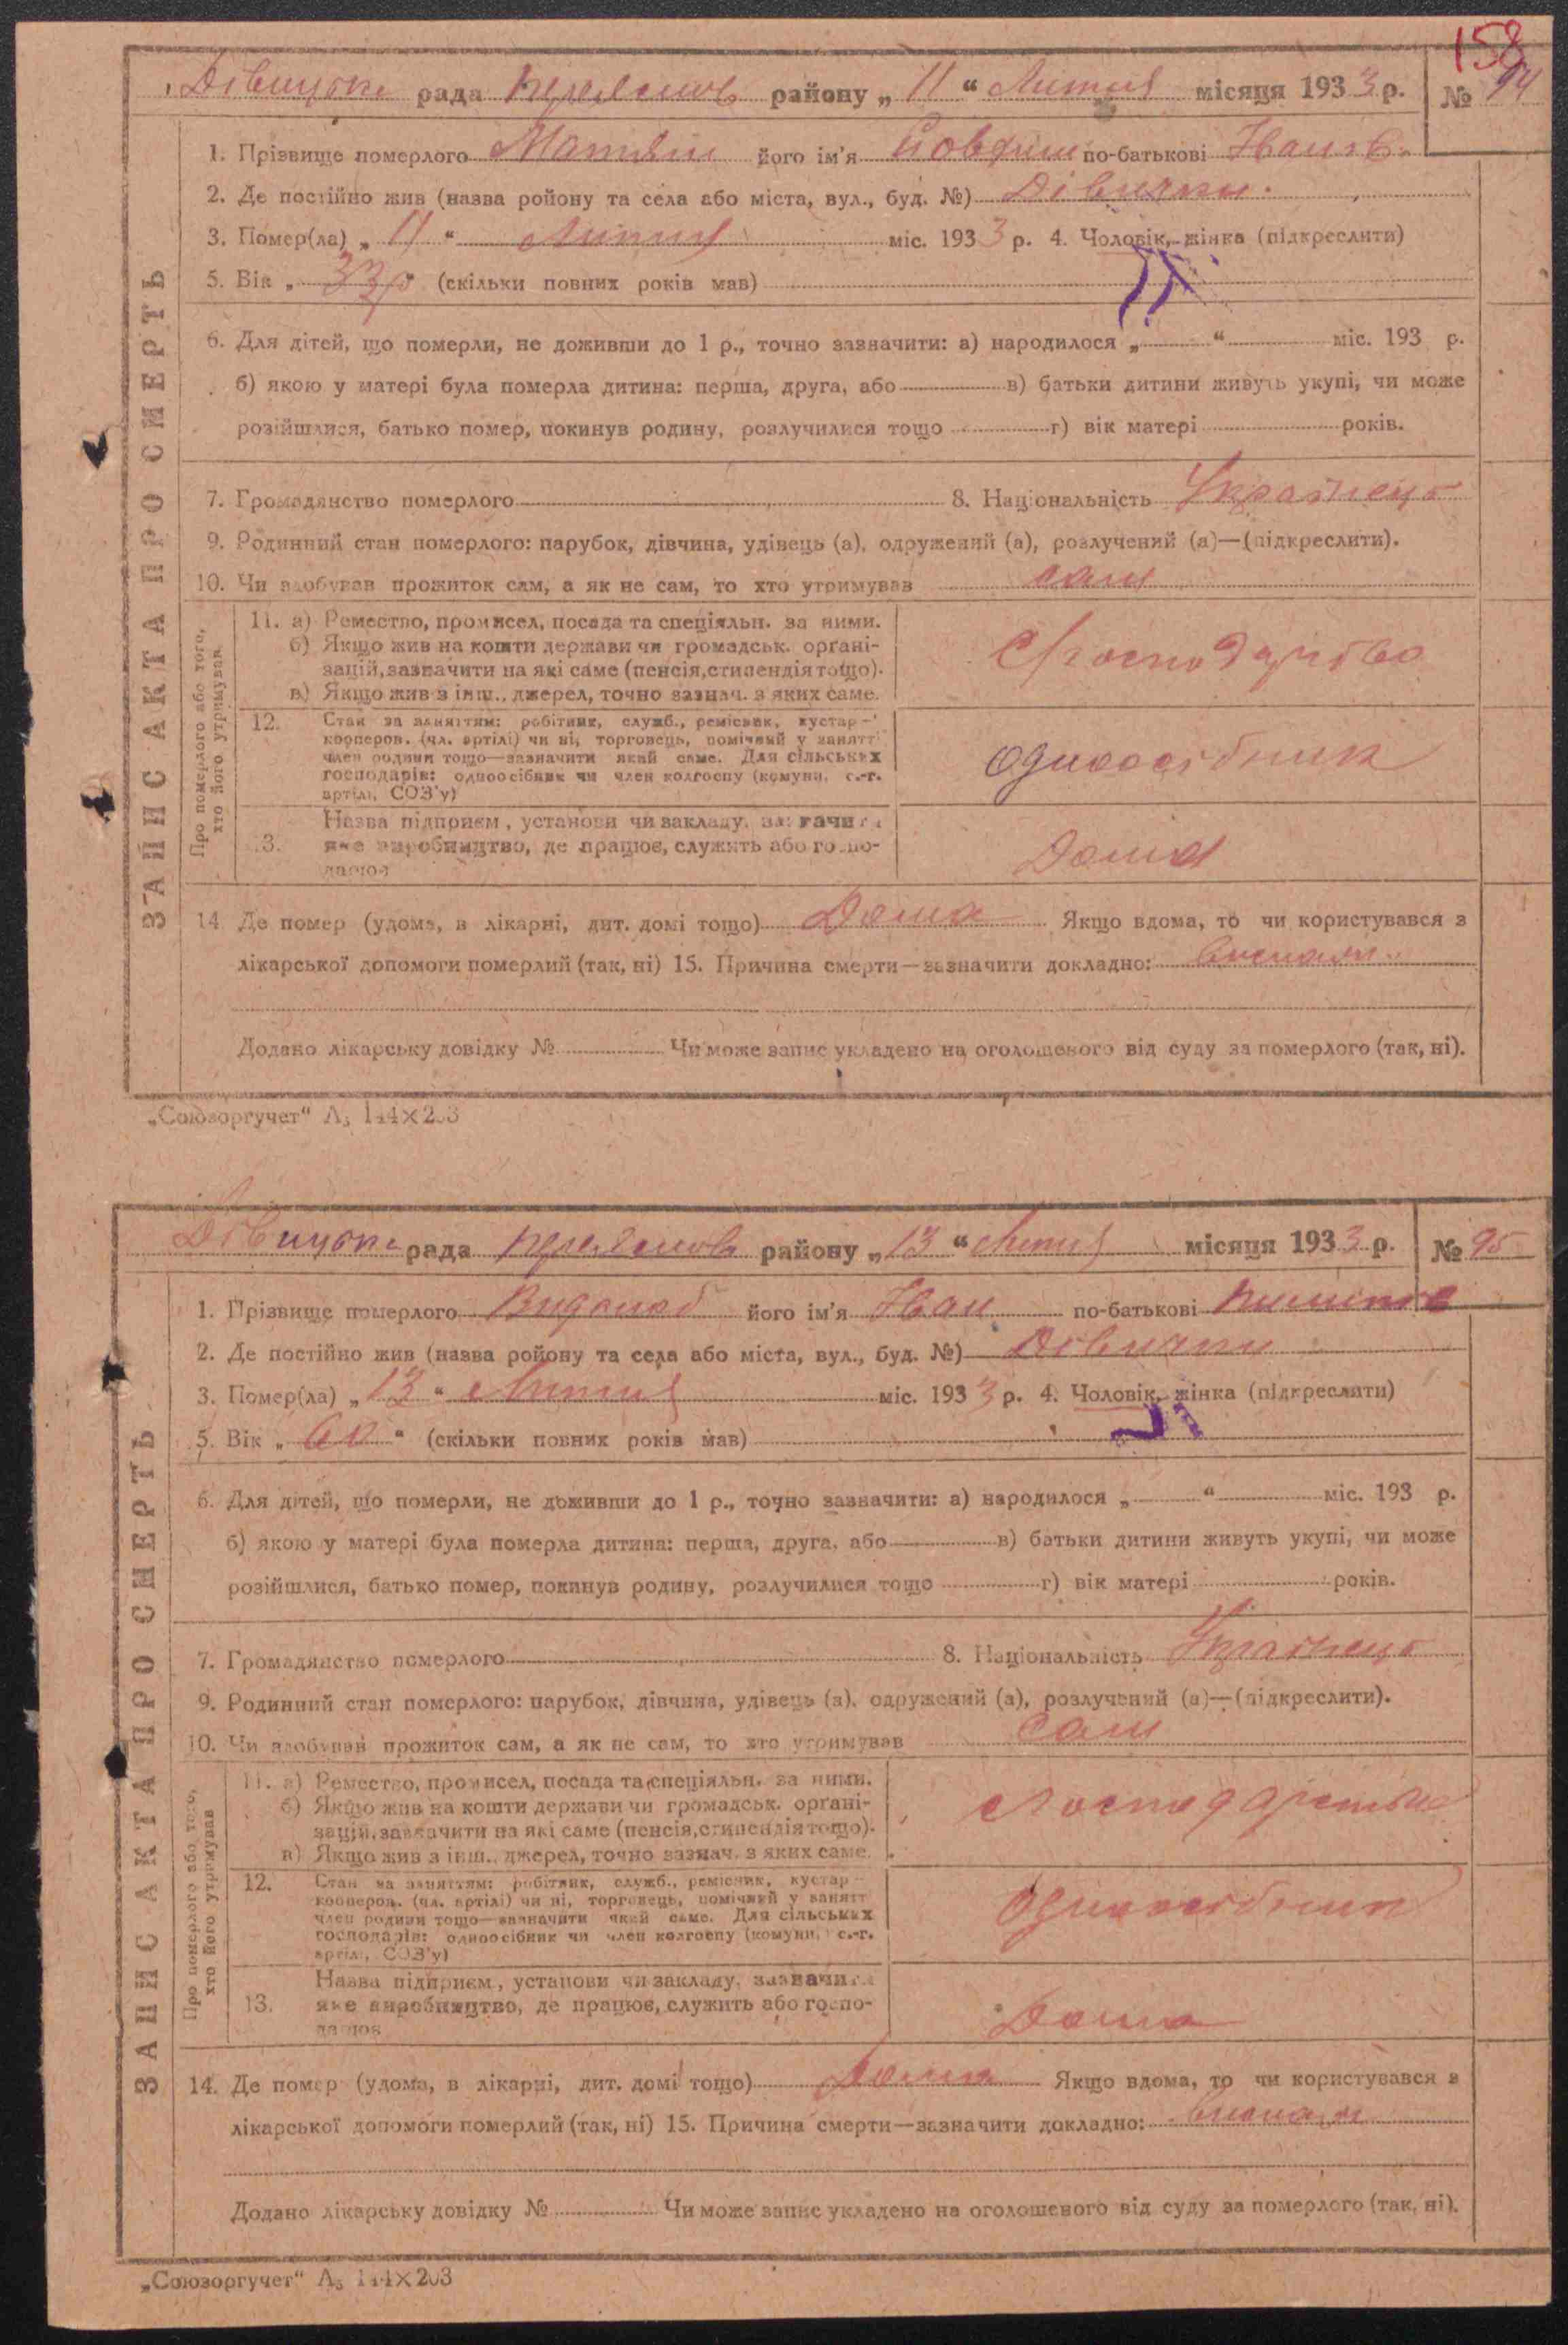 158
Дівицька рада Переяслов району „ 11 “ Липня місяця 1933 р. № 94
1. Прізвище померлого його ім'я по-батькові Іванов.
2. Де постійно жив (назва ройону та села або міста, вул., буд. №) Дівички.
3. Помер(ла) „ 11 “ Липня міс. 1933 р. 4. Чоловік, жінка (підкреслити)
5. Вік „ 33р (скільки повних років мав)
6. Для дітей, що померли, не доживши до 1 р., точно зазначити: а) народилося „ “ міс. 193 р.
б) якою у матері була померла дитина: перша, друга, або в) батьки дитини живуть укупі, чи може
розійшлися, батько помер, покинув родину, розлучилися тощо г) вік матері років.
7. Громадянство померлого 8. Національність Українець
9. Родинний стан померлого: парубок, дівчина, удівець (а), одружений (а), розлучений (а)—(підкреслити).
10. Чи здобував прожиток сам, а як не сам, то хто утримував сам
11. а) Ремество, промисел, посада та спеціяльн. за ними.
б) Якщо жив на кошти держави чи громадськ. орґані-
зацій, зазначити на які саме (пенсія, стипендія тощо).
в) Якщо жив з інш., джерел, точно зазнач. з яких саме.
Господарство
12. Стан за заняттям: робітник, служб., ремісник, кустар—
кооперов. (чл. артілі) чи ні, торговець, помічний у занятті
член родини тощо—зазначити який саме. Для сільських
господарів: одноосібник чи член колгоспу (комуни, с.-г.
артілі, СОЗ'у)
одноосібник
13. Назва підприєм, установи чи закладу, зазначити
яке виробництво, де працює, служить або госпо-
дарює
Дома
14. Де помер (удома, в лікарні, дит. домі тощо) Дома Якщо вдома, то чи користувався з
лікарської допомоги померлий (так, ні) 15. Причина смерти—зазначити докладно:
Додано лікарську довідку № Чи може запис укладено на оголошеного від суду за померлого (так, ні).
ЗАПИС АКТА ПРО СМЕРТЬ
Про померлого або того,
хто його утримував
„Союзоргучет“ А₅ 144×203
Дівицька рада Переяслов району „ 13 “ Липня місяця 1933 р. № 95
1. Прізвище померлого його ім'я Іван по-батькові
2. Де постійно жив (назва ройону та села або міста, вул., буд. №) Дівички
3. Помер(ла) „ 13 “ Липня міс. 1933 р. 4. Чоловік, жінка (підкреслити)
5. Вік „ 60 “ (скільки повних років мав)
6. Для дітей, що померли, не доживши до 1 р., точно зазначити: а) народилося „ “ міс. 193 р.
б) якою у матері була померла дитина: перша, друга, або в) батьки дитини живуть укупі, чи може
розійшлися, батько помер, покинув родину, розлучилися тощо г) вік матері років.
7. Громадянство померлого 8. Національність Українець
9. Родинний стан померлого: парубок, дівчина, удівець (а), одружений (а), розлучений (а)—(підкреслити).
10. Чи здобував прожиток сам, а як не сам, то хто утримував сам
11. а) Ремество, промисел, посада та спеціяльн. за ними.
б) Якщо жив на кошти держави чи громадськ. орґані-
зацій, зазначити на які саме (пенсія, стипендія тощо).
в) Якщо жив з інш., джерел, точно зазнач. з яких саме.
Господарство
12. Стан за заняттям: робітник, служб., ремісник, кустар—
кооперов. (чл. артілі) чи ні, торговець, помічний у занятті
член родини тощо—зазначити який саме. Для сільських
господарів: одноосібник чи член колгоспу (комуни, с.-г.
артілі, СОЗ'у)
Одноосібник
13. Назва підприєм, установи чи закладу, зазначити
яке виробництво, де працює, служить або госпо-
дарює
Дома
14. Де помер (удома, в лікарні, дит. домі тощо) Дома Якщо вдома, то чи користувався з
лікарської допомоги померлий (так, ні) 15. Причина смерти—зазначити докладно:
Додано лікарську довідку № Чи може запис укладено на оголошеного від суду за померлого (так, ні).
ЗАПИС АКТА ПРО СМЕРТЬ
Про померлого або того,
хто його утримував
„Союзоргучет“ А₅ 144×203